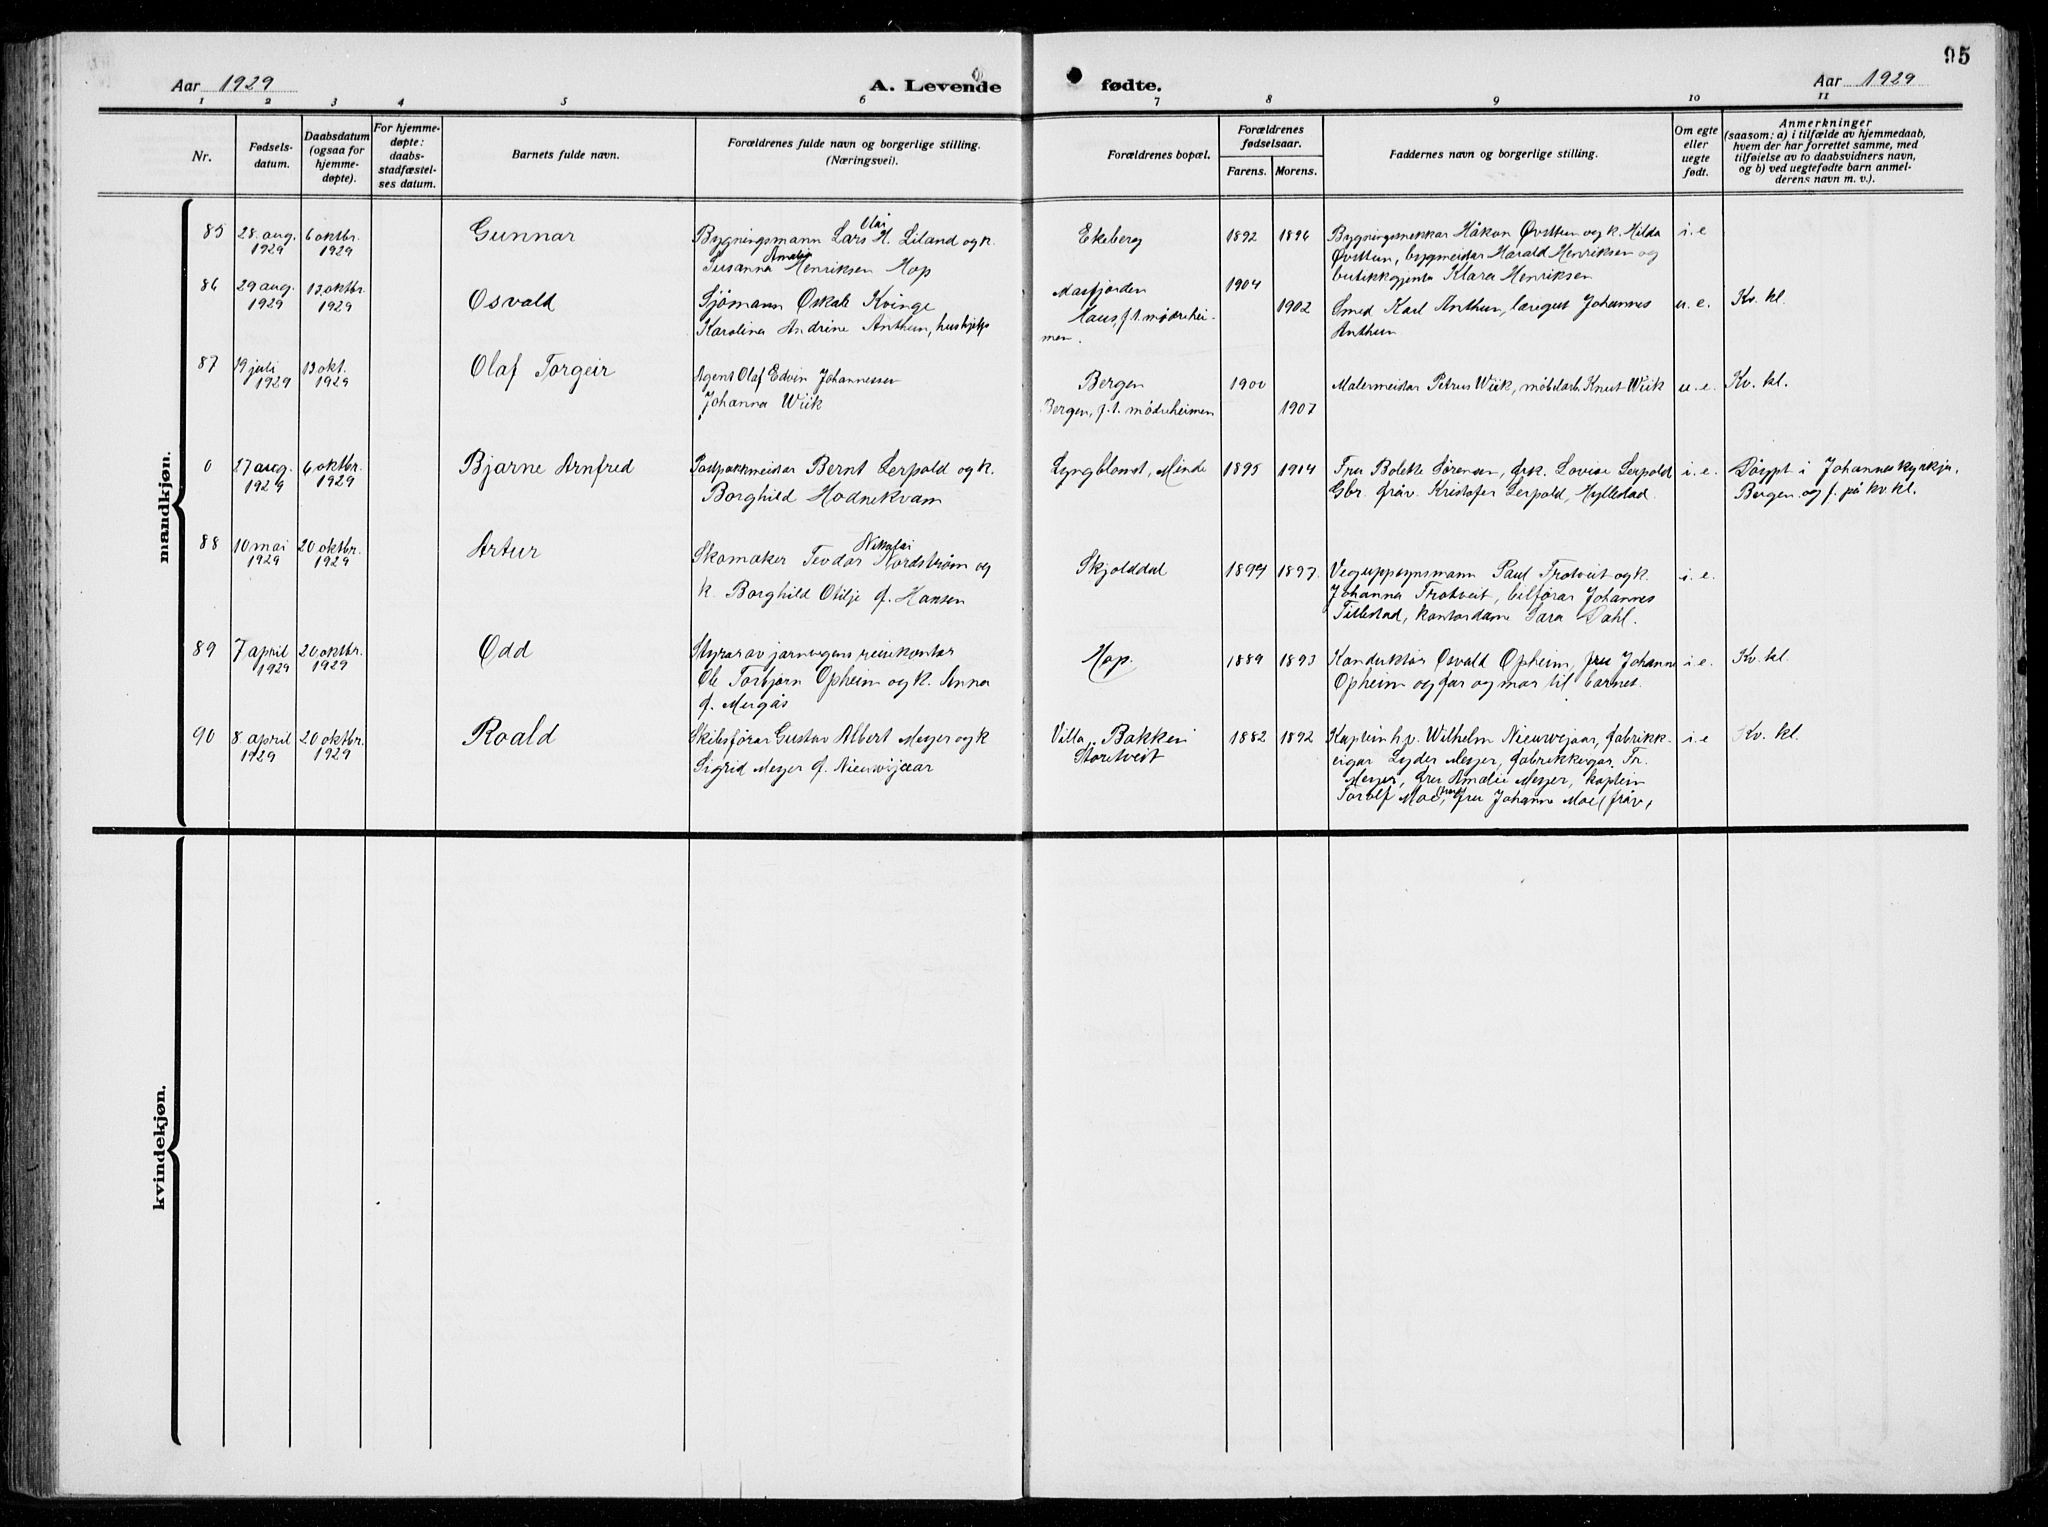 95
Aar 1929
A. Levende fødte.
Aar 1929
1 2 3 4 5 6 7 8 9 10 11
Nr.
Fødsels-
datum.
Daabsdatum
(ogsaa for
hjemme-
døpte).
For hjemme-
døpte:
daabs-
stadfæstel-
ses datum.
Barnets fulde navn.
Forældrenes fulde navn og borgerlige stilling.
(Næringsvei).
Forældrenes bopæl.
Forældrenes
fødselsaar.
Farens. Morens.
Faddernes navn og borgerlige stilling.
Om egte
eller
uegte
født.
Anmerkninger
(saasom: a) i tilfælde av hjemmedaab,
hvem der har forrettet samme, med
tilføielse av to daabsvidners navn,
og b) ved uegtefødte barn anmel-
derens navn m. v.).
mandkjøn.
85
28 aug.
1929
6 oktbr.
1929
Gunnar
Bygningsmann Lars H. Liland og k.
Susanna Amalie Henriksen Hop
Ekeberg
1892 1896
Bygningsnekkar Håkon Øvsttun og k. Hilda
Øvsttun, bygmeistar Harald Henriksen og
butikkgjenta Klara Henriksen
i. e
86
29 aug.
1929
13 oktbr.
1929
Osvald
Sjømann Øskale Kvinge
Karolina Andrine Anthun, hushjelp
Masfjorden
Haus, f. t. mødrehei-
men.
1904
1902
Smed Karl Anthun, læregut Johannes
Anthun
u. e.
Kv. kl.
87
19 juli
1929
13 okt.
1929
Olaf Torgeir
Agent Olaf Edvin Johannessen
Johanna Wiik
Bergen
Bergen, f. t. mødreheimen
1900
1907
Malermeistar Petrus Wiik, møbelarb. Knut Wiik
u. e.
Kv. kl.
0
27 aug.
1929
6 oktbr.
1929
Bjarne Arnfred
Postpakkmeistar Bernt Lerpold og k.
Borghild Hodnekvam
Lyngblomst, Minde
1895 1904
Fru Bolette Sørensen, frk. Lovise Lerpold
Gbr. fråv. Kristofer Lerpold, Hyllestad.
i. e.
Døypt i Johanneskyrkja,
Bergen og f. på kv. kl.
88
10 mai
1929
20 oktbr.
1929
Artur
Skomaker Teodor Nikolai Nordstrøm og
k. Borghild Otilje f. Hansen
Skjolddal
1899 1897.
Veguppsynsmann Paul Trotveit og k.
Johanna Trotveit, bilførar Johannes
Tillestad, kontordame Sara Dahl.
i. e.
89
7 april
1929
20 oktbr.
1929
Odd
Styrar av jarnvegens reisekontor
Ole Torbjørn Opheim og k. Anna
f. Mergås
Hop.
1889 1893
Konduktør Osvald Opheim, fru Johanne
Opheim og far og mor til barnet.
i. e.
Kv. kl.
90
8 april
1929
20 oktbr.
1929
Roald
Skibsførar Gustav Albert Meyer og k
Sigrid Meyer f. Nieuwejaar
Villa Bakken
Storetveit
1882 1892
Kaptein h.v. Wilhelm Nieuwejaar, fabrikk-
eigar Lyder Meyer, fabrikkeigar Fr.
Meyer, fru Amalie Meyer, kaptein
Torolf Moe, fru Johanne Moe, fråv,
i. e
Kv. kl.
kvindekjøn.